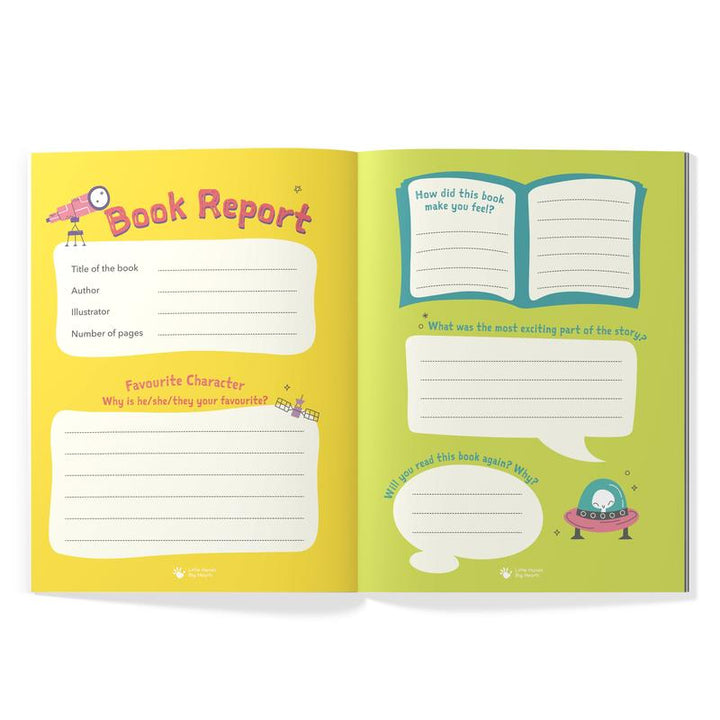 Book Report
Title of the book
Author
Illustrator
Number of pages
Favourite Character
Why is he/she/they your favourite?
Little Hands
Big Hearts
How did this book
make you feel?
What was the most exciting part of the story?
Will you read this book again? Why?
Little Hands
Big Hearts